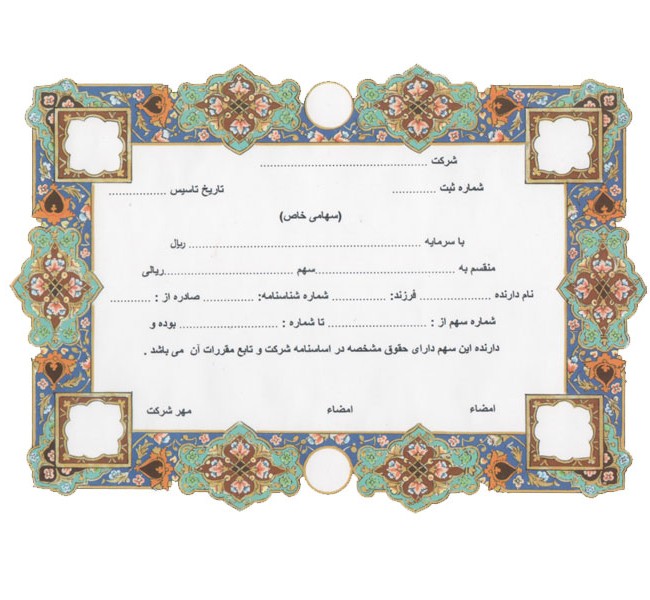 شرکت ............................................
شماره ثبت ............ تاریخ تاسیس ................
(سهامی خاص)
با سرمایه ............................................................ ریال
منقسم به ....................................سهم ..................................ریالی
نام دارنده ................... فرزند: .............. شماره شناسنامه: .............. صادره از : ...........
شماره سهم از : .......................... تا شماره : .......................... بوده و
دارنده این سهم دارای حقوق مشخصه در اساسنامه شرکت و تابع مقررات آن می باشد .
امضاء امضاء مهر شرکت